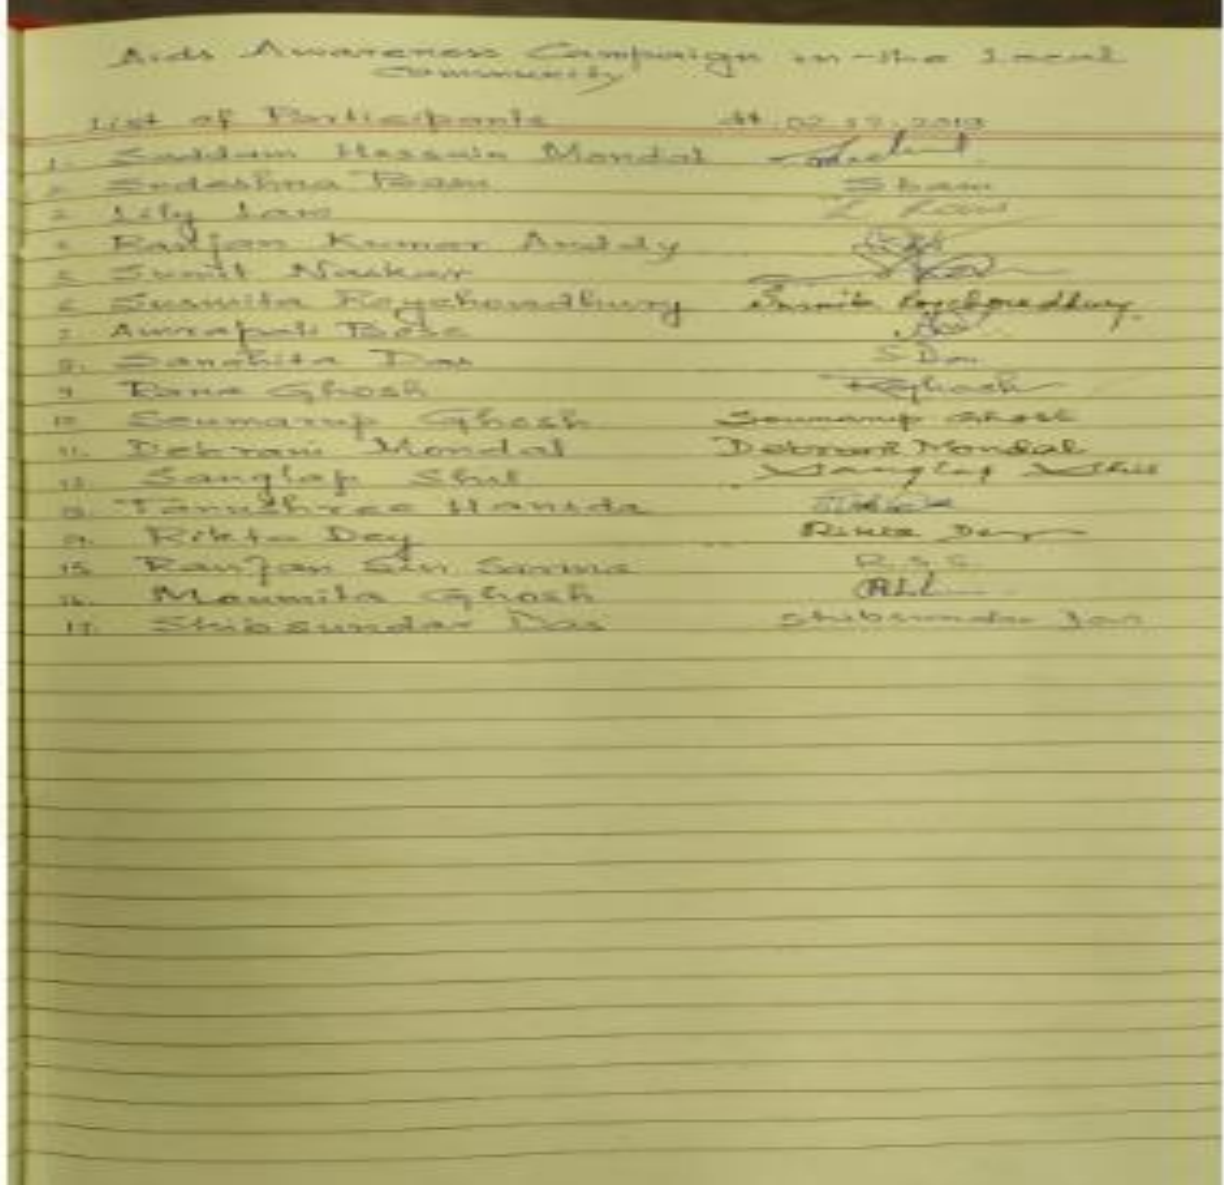 Aids Awareness Campaign in-the Local
Community
List of Participants dt. 02.12.2019
1. Saddam Hossain Mondal
2. Sudeshna Basu S Basu
3. Lily Law L Law
4. Ranjan Kumar
5. Sumit Naskar
6. Susmita Roychowdhury Susmita Roychowdhury
7. Amrapali Bose
8. Sanchita Das S Das
9. Rana Ghosh RGhosh
10. Soumarup Ghosh Soumarup Ghosh
11. Debrani Mondal Debrani Mondal
12. Sanglap Shil Sanglap Shil
13. Tanushree Hansda
14. Rikta Dey Rikta Dey
15. Ranjan Sen Sarma R.S.S.
16. Moumita Ghosh
17. Shibsundar Das Shibsundar Das